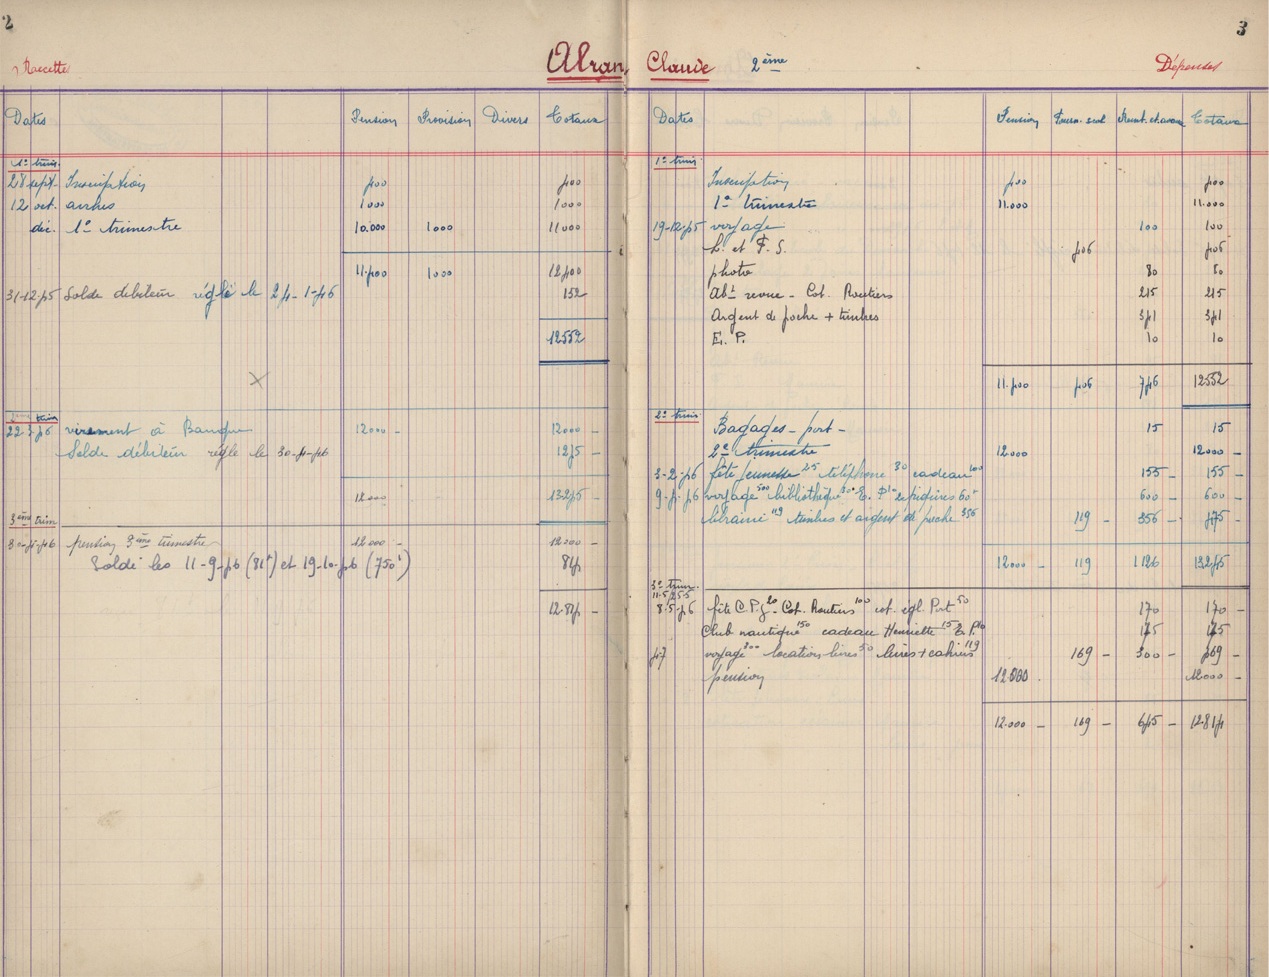 2
Recette
Alran
Dates Pension Provision Divers Totaux
1er trim.
28 sept. Inscription 400 400
12 oct. arrhes 1000 1000
déc. 1er trimestre 10.000 1000 11000
11.400 1000 12400
31-12-45 Solde débiteur réglé le 24-1-46 152
12552
2ème trim
22-3-46 virement à Banque 12000 - 12000 -
Solde débiteur réglé le 30-4-46 1245 -
12000 13245 -
3ème trim
30-4-46 pension 3ème trimestre 12000 - 12000 -
Soldé les 11-9-46 et 19-10-46 (750f) 814
12.814 -
3
Claude 2ème
Dépenses
Dates Pension Fourn. scol Totaux
1er trim.
Inscription 400 400
1er trimestre 11.000 11.000
19-12-45 voyage 100 100
L. et F. S. 406 406
photo 80 80
Abt revue - Cot. Routiers 215 215
Argent de poche + timbres 341 341
E. P. 10 10
11.400 406 746 12552
2e trim.
Bagages - port - 15 15
2e trimestre 12000 12000 -
3-2-46 fête Jeunesse 25 téléphone 30 cadeau 100 155 - 155 -
9-4-46 voyage 500 bibliothèque 30 E. P 10 60 600 - 600 -
librairie 119 timbres et argent de poche 356 119 - 356 - 475 -
12000 - 119 1126 13245
3e trim.
11.5/25.5
8-5-46 fête C.P.G 20 Cot. Routiers 100 cot. egl. Prot 50 170 170 -
Club nautique 150 cadeau Henriette 15 E.P. 10 175 175
4-7 voyage 300 location livres 50 livres + cahiers 119 169 - 300 - 469 -
pension 12000 12000 -
12.000 - 169 - 645 - 12.814